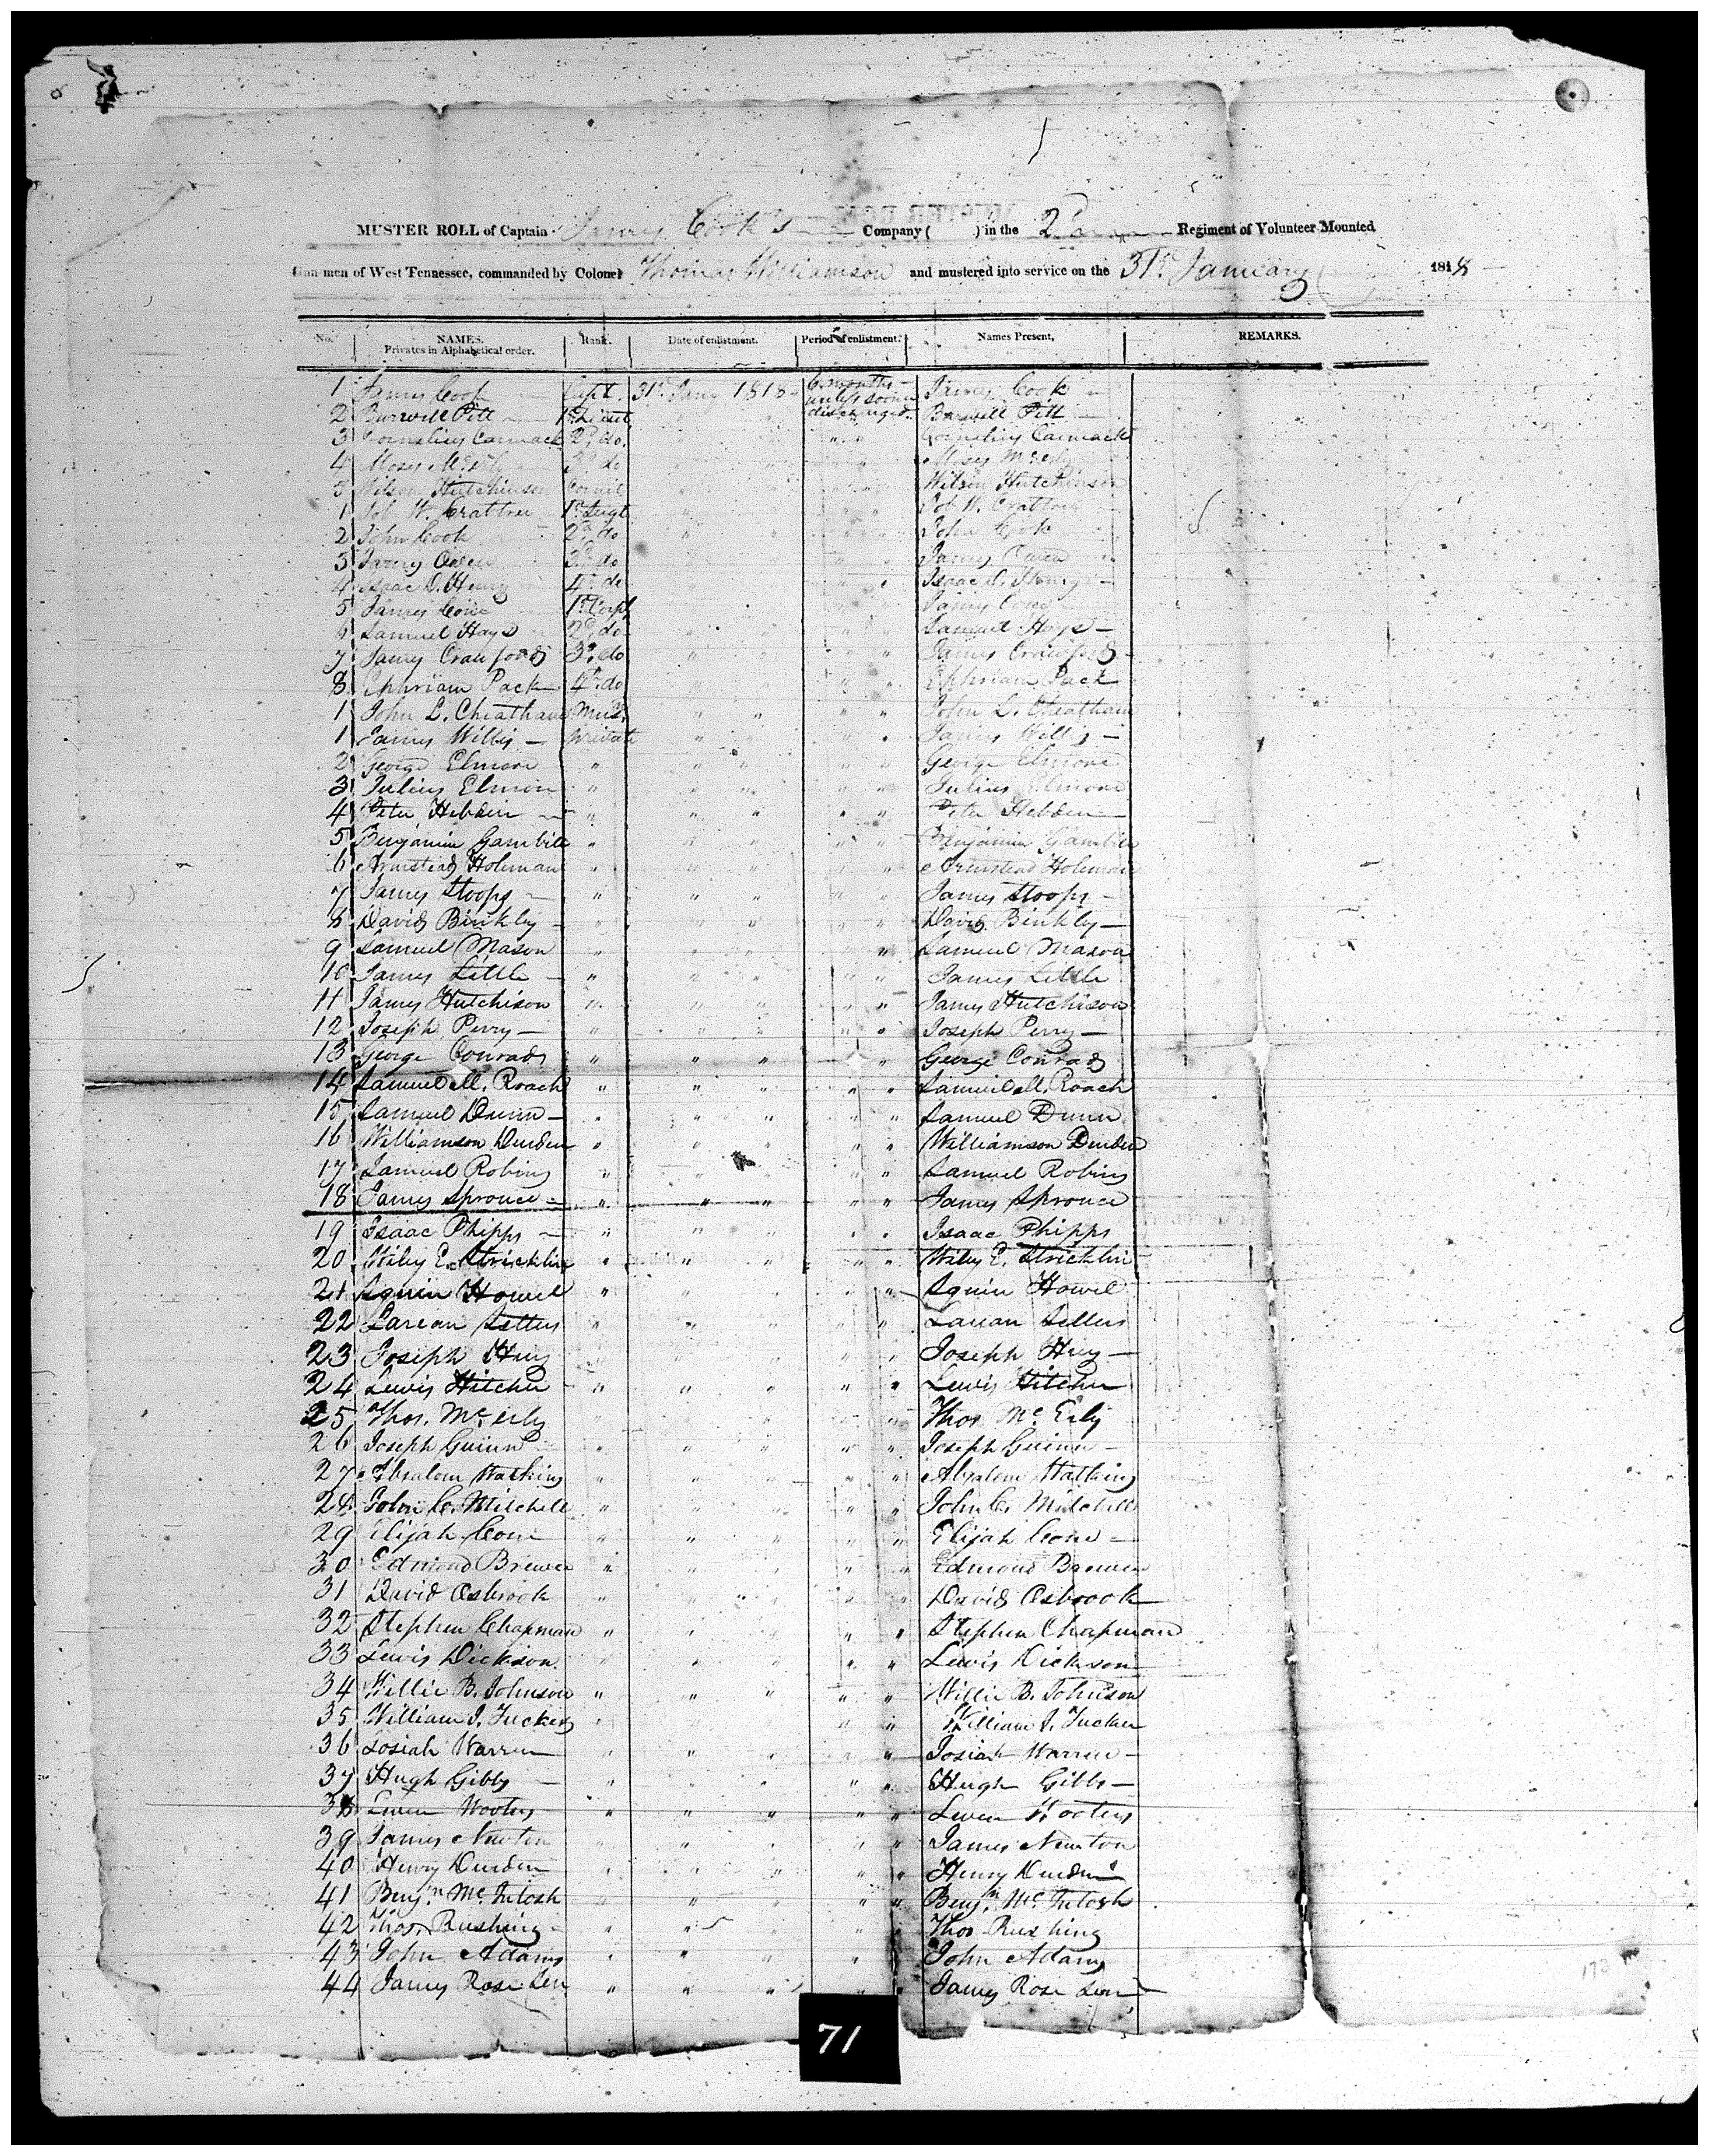 MUSTER ROLL of Captain James Cook's Company ( ) in the 2d Regiment of Volunteer Mounted
Gun-men of West Tennessee, commanded by Colonel Thomas Williamson and mustered into service on the 31st January 1818
No. NAMES. Privates in Alphabetical order. Rank. Date of enlistment. Period of enlistment. Names Present, REMARKS.
1 James Cook Capt. 31st Jany 1818 6 months unless sooner discharged. James Cook
2 Burwell Pitt 1st Lieut " " Burwell Pitt
3 Cornelius Carmack 2d do. " " Cornelius Carmack
4 Moses McErly 3d do " " Moses McErly
5 Wilson Hutchinson Cornit " " Wilson Hutchinson
1 Job W. Crabtree 1st Sergt " " Job W. Crabtree
2 John Cook 2d do " " John Cook
3 James Owen 3d do " " James Owen
4 Isaac D. Henry 4th do " " Isaac D. Henry
5 James Cone 1st Corpl " " James Cone
6 Samuel Hays 2d do " " Samuel Hays
7 James Crawford 3d do " " James Crawford
8 Ephriam Pack 4th do " " Ephriam Pack
1 John L. Cheatham Mus. " " John L. Cheatham
1 James Willis private " " James Willis
2 George Elmore " " " George Elmore
3 Julius Elmore " " " Julius Elmore
4 Peter Hebden " " " Peter Hebden
5 Benjamin Gambill " " " Benjamin Gambill
6 Armstead Holman " " " Armstead Holman
7 James Stoops " " " James Stoops
8 David Binkly " " " David Binkly
9 Samuel Mason " " " Samuel Mason
10 James Little " " " James Little
11 James Hutchison " " " James Hutchison
12 Joseph Perry " " " Joseph Perry
13 George Conrad " " " George Conrad
14 Samuel M. Roach " " " Samuel M. Roach
15 Samuel Dunn " " " Samuel Dunn
16 Williamson Durden " " " Williamson Durden
17 Samuel Robins " " " Samuel Robins
18 James Sprouce " " " James Sprouce
19 Isaac Phipps " " " Isaac Phipps
20 Wiley E. Stricklin " " " Wiley E. Stricklin
21 Squire Howel " " " Squire Howel
22 Sellers " " " Sellers
23 Joseph Huy " " " Joseph Huy
24 Lewis Hitcher " " " Lewis Hitcher
25 Thos. McErly " " " Thos McErly
26 Joseph Guinn " " " Joseph Guinn
27 Absalom Watkins " " " Absalom Watkins
28 John C. Mitchell " " " John C. Mitchell
29 Elijah Cone " " " Elijah Cone
30 Edmond Brewer " " " Edmond Brewer
31 David Osbrook " " " David Osbrook
32 Stephen Chapman " " " Stephen Chapman
33 Lewis Dickson " " " Lewis Dickson
34 Willie B. Johnson " " " Willie B. Johnson
35 William J. Tucker " " " William J. Tucker
36 Josiah Warren " " " Josiah Warren
37 Hugh Gibbs " " " Hugh Gibbs
38 Leven Wooters " " " Leven Wooters
39 James Newton " " " James Newton
40 Henry Durden " " " Henry Durden
41 Benjn. McIntosh " " " Benjn. McIntosh
42 Thos. Rushing " " " Thos Rushing
43 John Adams " " " John Adams
44 James Rose Sen " " " James Rose Sen
71